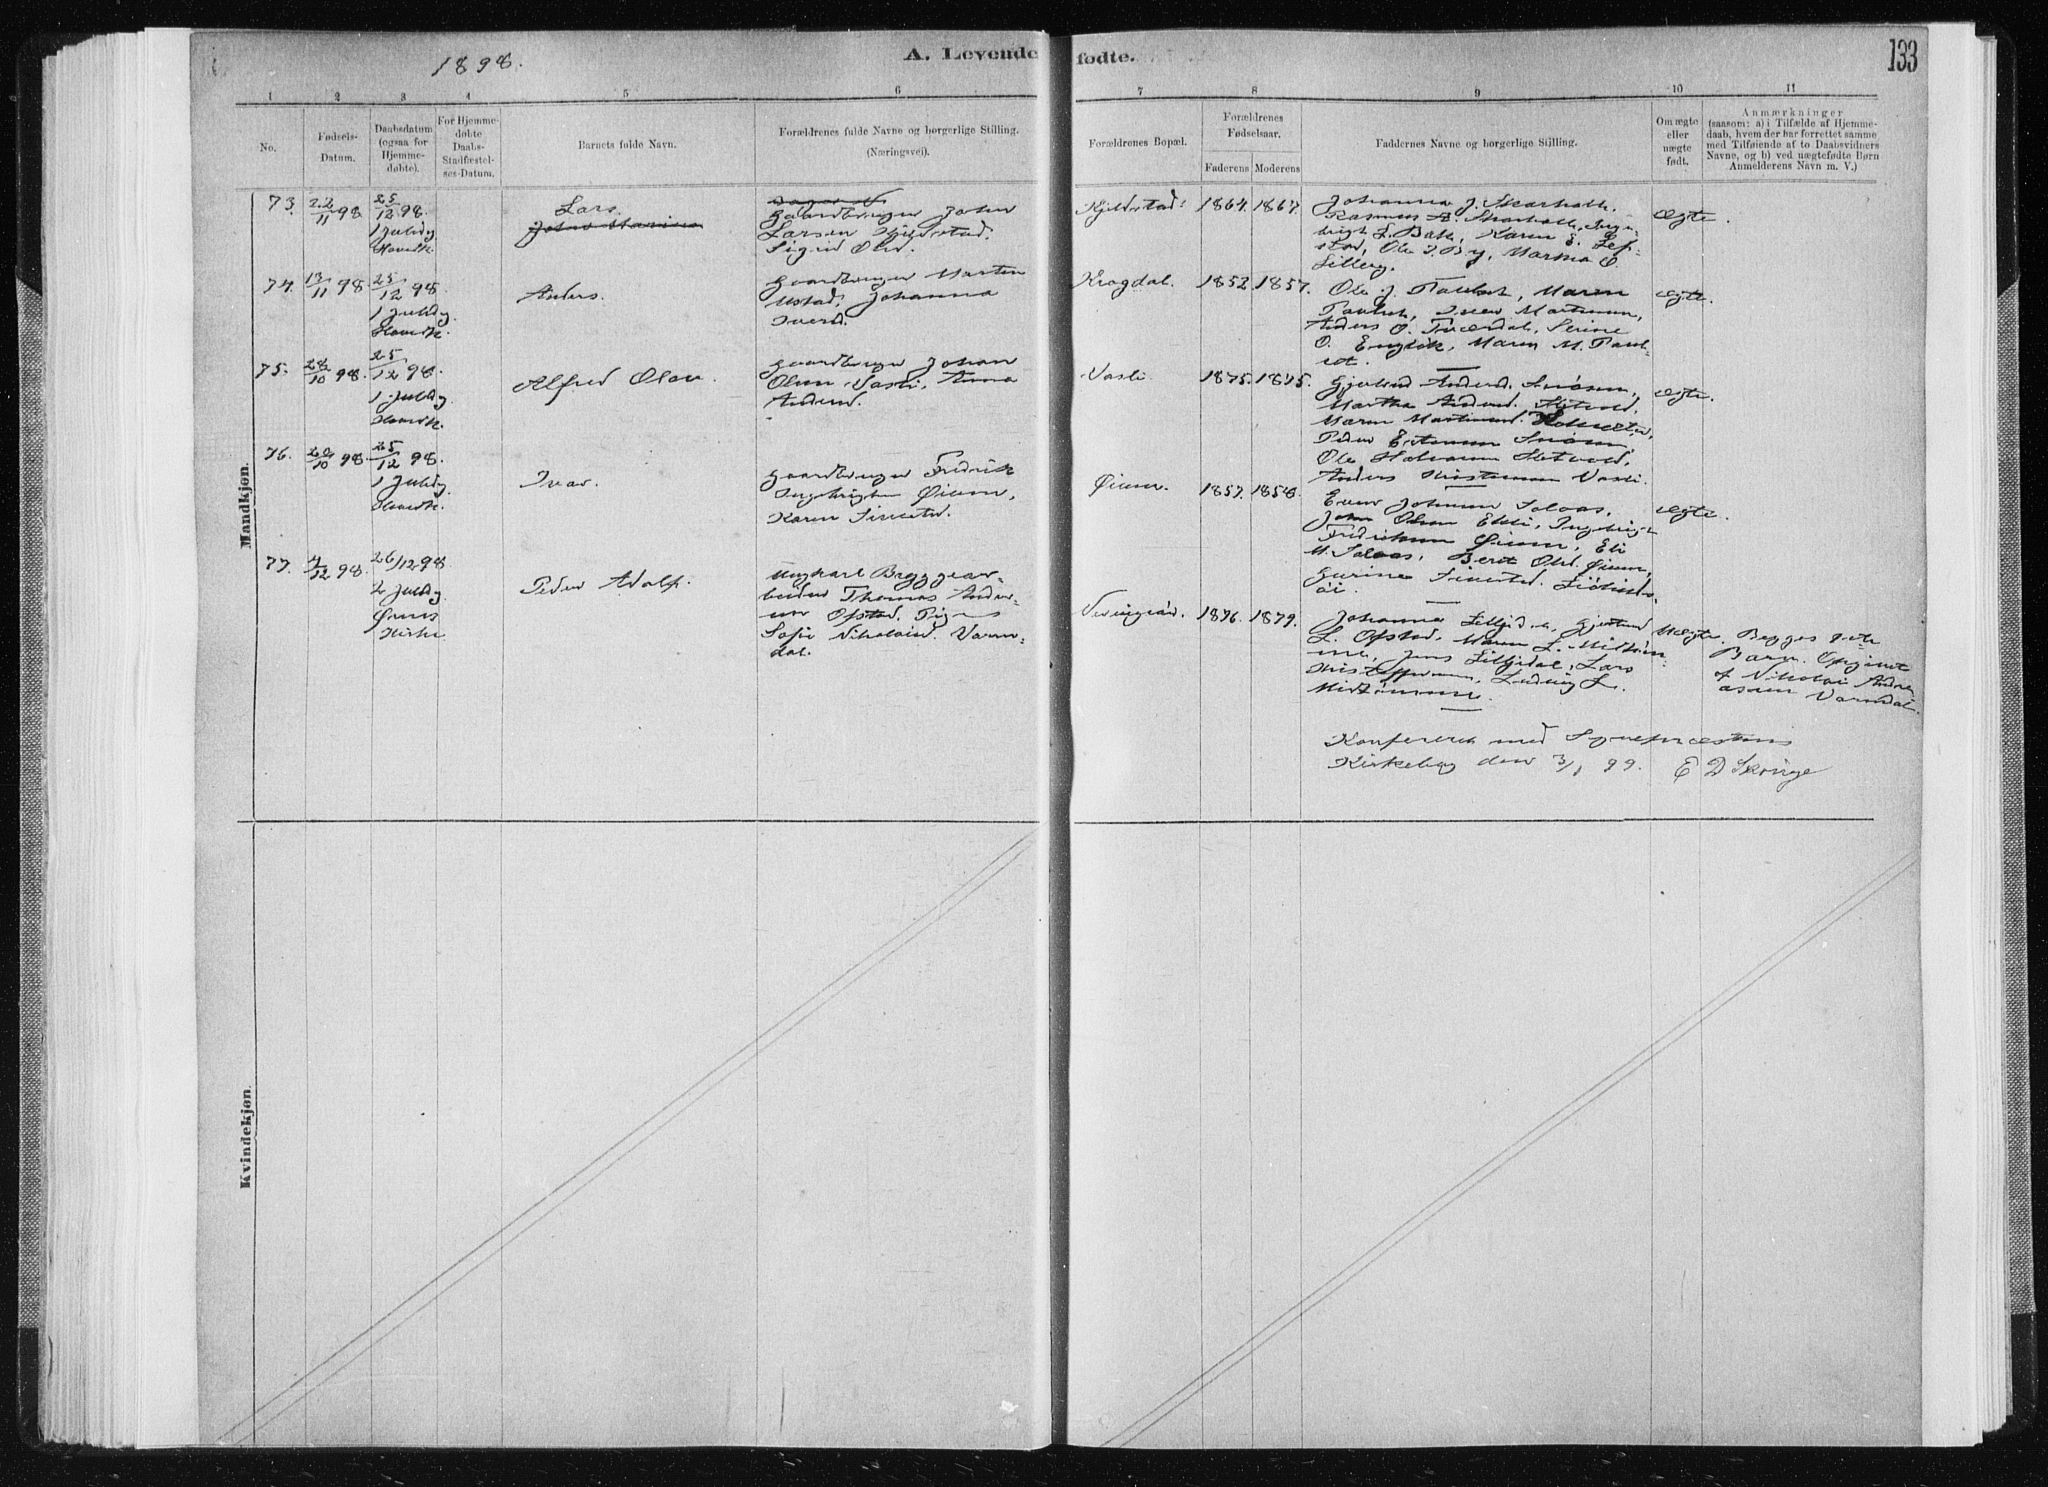 1898.
A. Levende fødte.
133
1 2 3 4 5 6 7 8 9 10 11
No.
Fødsels-
Datum.
Daabsdatum
(ogsaa for
Hjemme-
døbte).
For Hjemme-
døbte
Daabs-
Stadfæstel-
ses-Datum.
Barnets fulde Navn.
Forældrenes fulde Navne og borgerlige Stilling.
(Næringsvei).
Forældrenes Bopæl.
Forældrenes
Fødselsaar.
Faderens Moderens
Faddernes Navne og borgerlige Stilling.
Om ægte
eller
uægte
født.
Anmærkninger
(saasom: a) i Tilfælde af Hjemme-
daab, hvem der har forrettet samme
med Tilføiende af to Daabsvidners
Navne, og b) ved uægtefødte Børn
Anmelderens Navn m. V.)
Mandkjøn.
73. 22/11 98.
25/12 98.
1 Juledg
Hovedk.
Lars.
Gaardbruger John
Larsen Kjeldstad,
Sigrid Olsd.
Kjeldstad. 1864. 1867.
Johanna J. Skarholt.
Rasmus A. Skarholt, Inge-
brigt L. Bakk, Karen E.
Ole I. By, Martha O.
Lillery.
ægte.
74. 13/11 98.
25/12 98.
1 Juledg.
Hovedk.
Anders.
Gaardbruger Morten
Ustad, Johanna
Iversd.
Krogdal. 1852. 1857.
Ole J. Maren
Iver Martinsen,
Anders O. Tverdal, Serine
O. Engvik, Maren M.
ægte.
75. 28/10 98.
25/12 98.
1 Juledg.
Hovedk.
Alfred Olav.
Gaardbruger Johan
Olsen Vasli, Anna
Andersd.
Vasli. 1875. 1875.
Gjertrud Andersd. Snøsen,
Martha Andersd. Sletvold,
Maren Martinsd.
Peder Estensen Snøsen,
Ole Halvorsen Sletvold,
Anders Kristensen Vasli.
ægte.
76. 20/10 98.
25/12 98.
1 Juledg.
Hovedk.
Ivar.
Gaardbruger Fredrik
Ingebrigtsen Øium,
Karen Sivertsd.
Øium. 1857. 1858.
Even Johnsen Solaas,
John Olsen Ekli, Ingebrigt
Fredriksen Øium, Eli
M. Solaas, Beret Olsd. Øium,
Gurine Sivertsd.
ægte.
77. 4/12 98.
26/12 98
2 Juledg.
Øiums
Kirke.
Peder Adolf.
Ungkarl Bryggear-
beider Thomas Ander-
sen Opstad, Pige
Sofie Nikolaisd. Varm-
dal.
1876. 1879.
Johanna Lillejdal, Gjertrud
L. Opstad, Maren L. Midtøm-
me, Jens Lillejdal, Lars
Kristoffersen, Ludvig L.
Midtømme.
Uægte.
Begges 1ste
Barn. Opgivet
af Nikolai Andre-
assen Varmdal.
Konfereret med Sognepræstens
Kirkebog den 3/1 99. E D Skringe
Kvindekjøn.